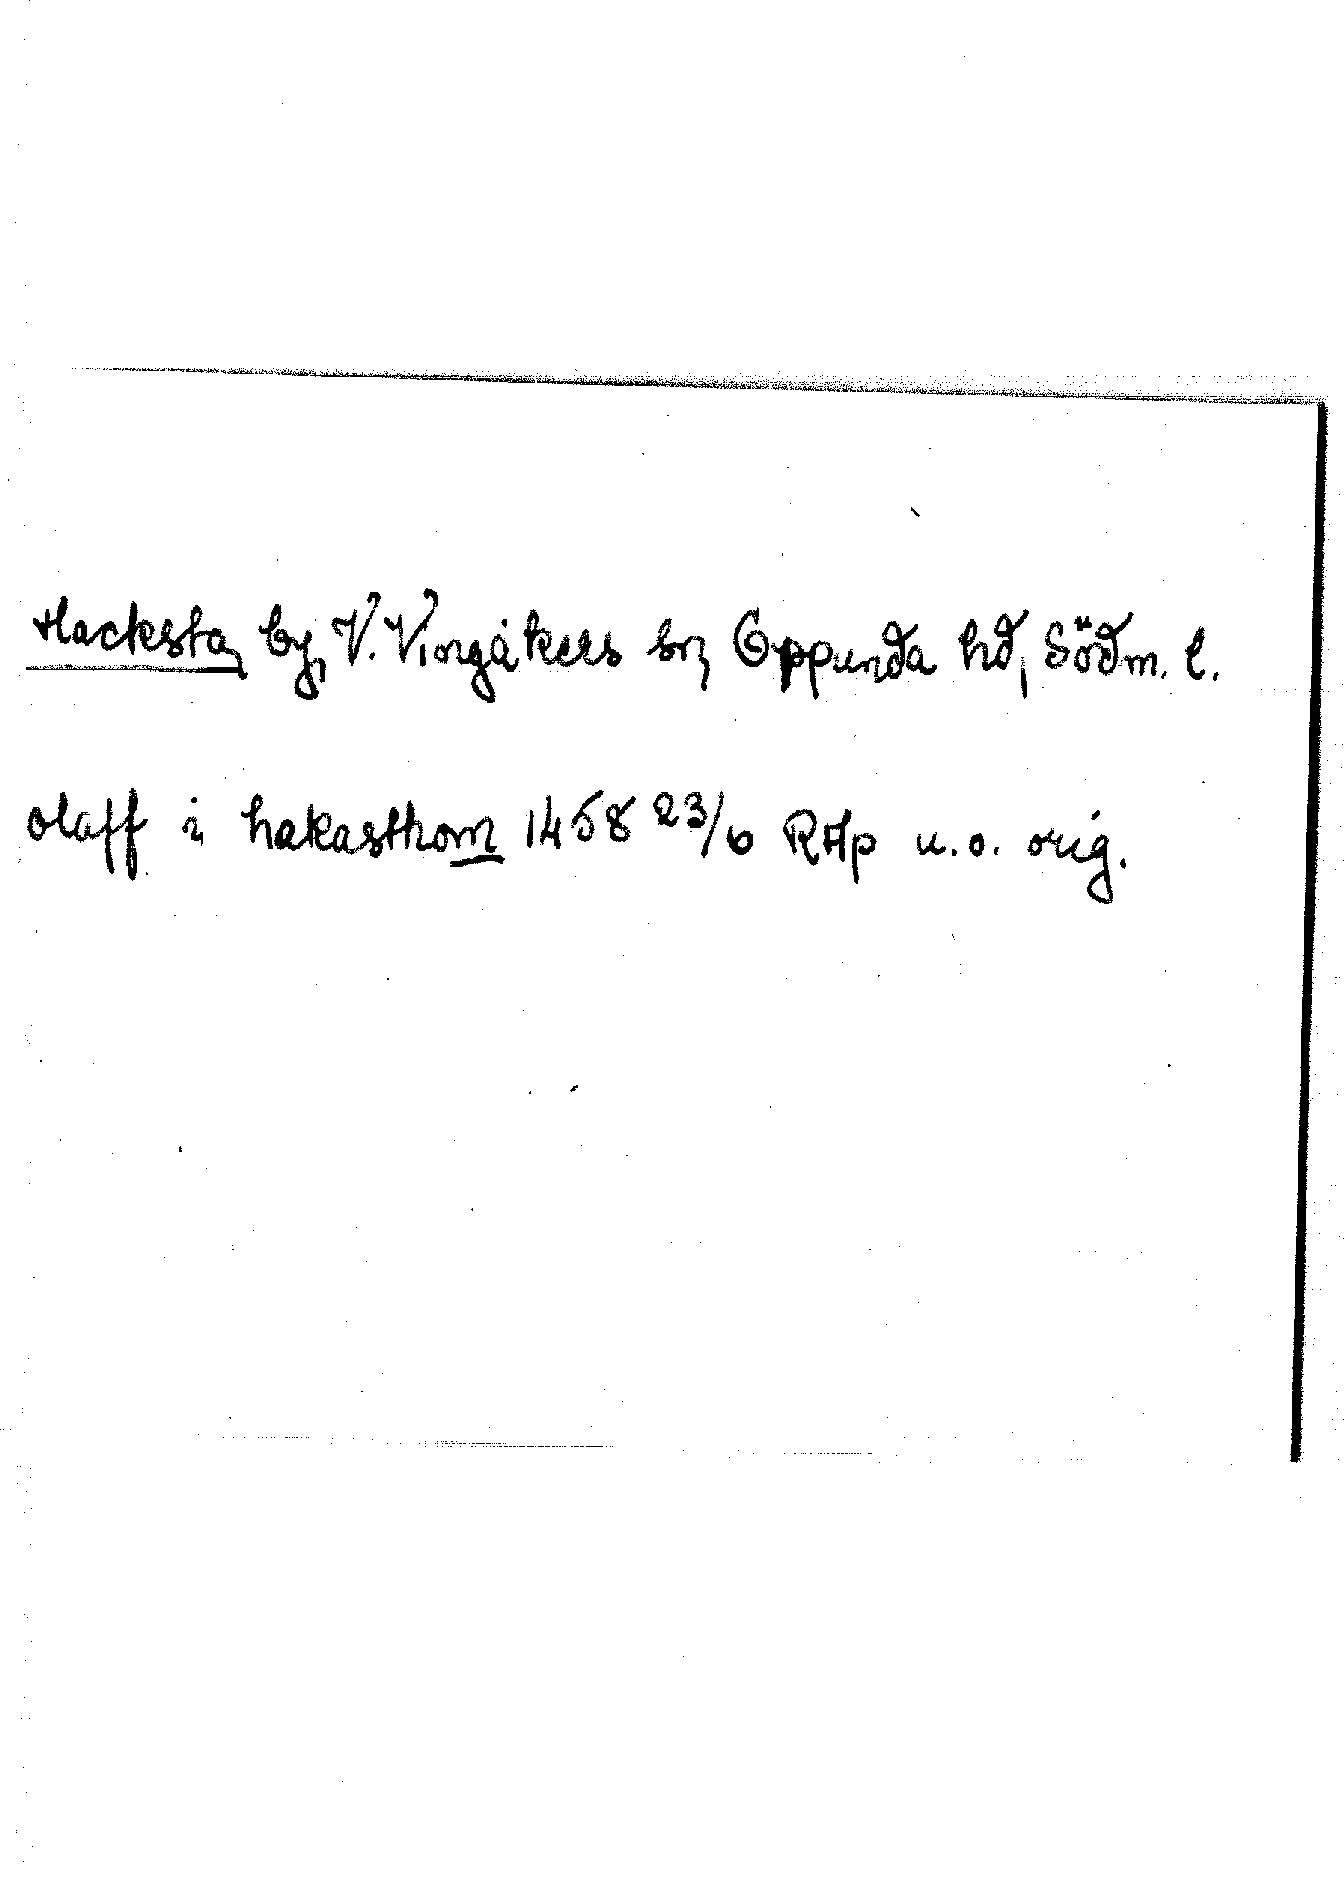 Hacksta, by, V. Vingåkers sn, Oppunda hd, Södm. l.
olaff i hakasthom 1458 23/6 RAp u.o. orig.